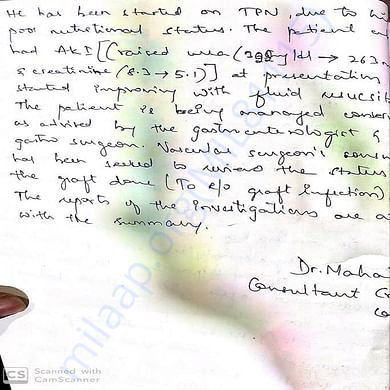 He has been started on TPN, due to his
poor nutritional status. The patient
had AKI [(raised urea ( → 263
s creatinine (8.3 → 5.1)] at presentation
started improving with fluid resuscit
The patient is being managed conser
as advised by the gastroenterologist &
gastro surgeon. Vascular surgeon's cons
has been seeked to review the status
the graft done (To r/o graft infection)
The reports of the investigations are a
with the summary.
Dr. Maha
Consultant C
Co
milaap.org
CS Scanned with
CamScanner